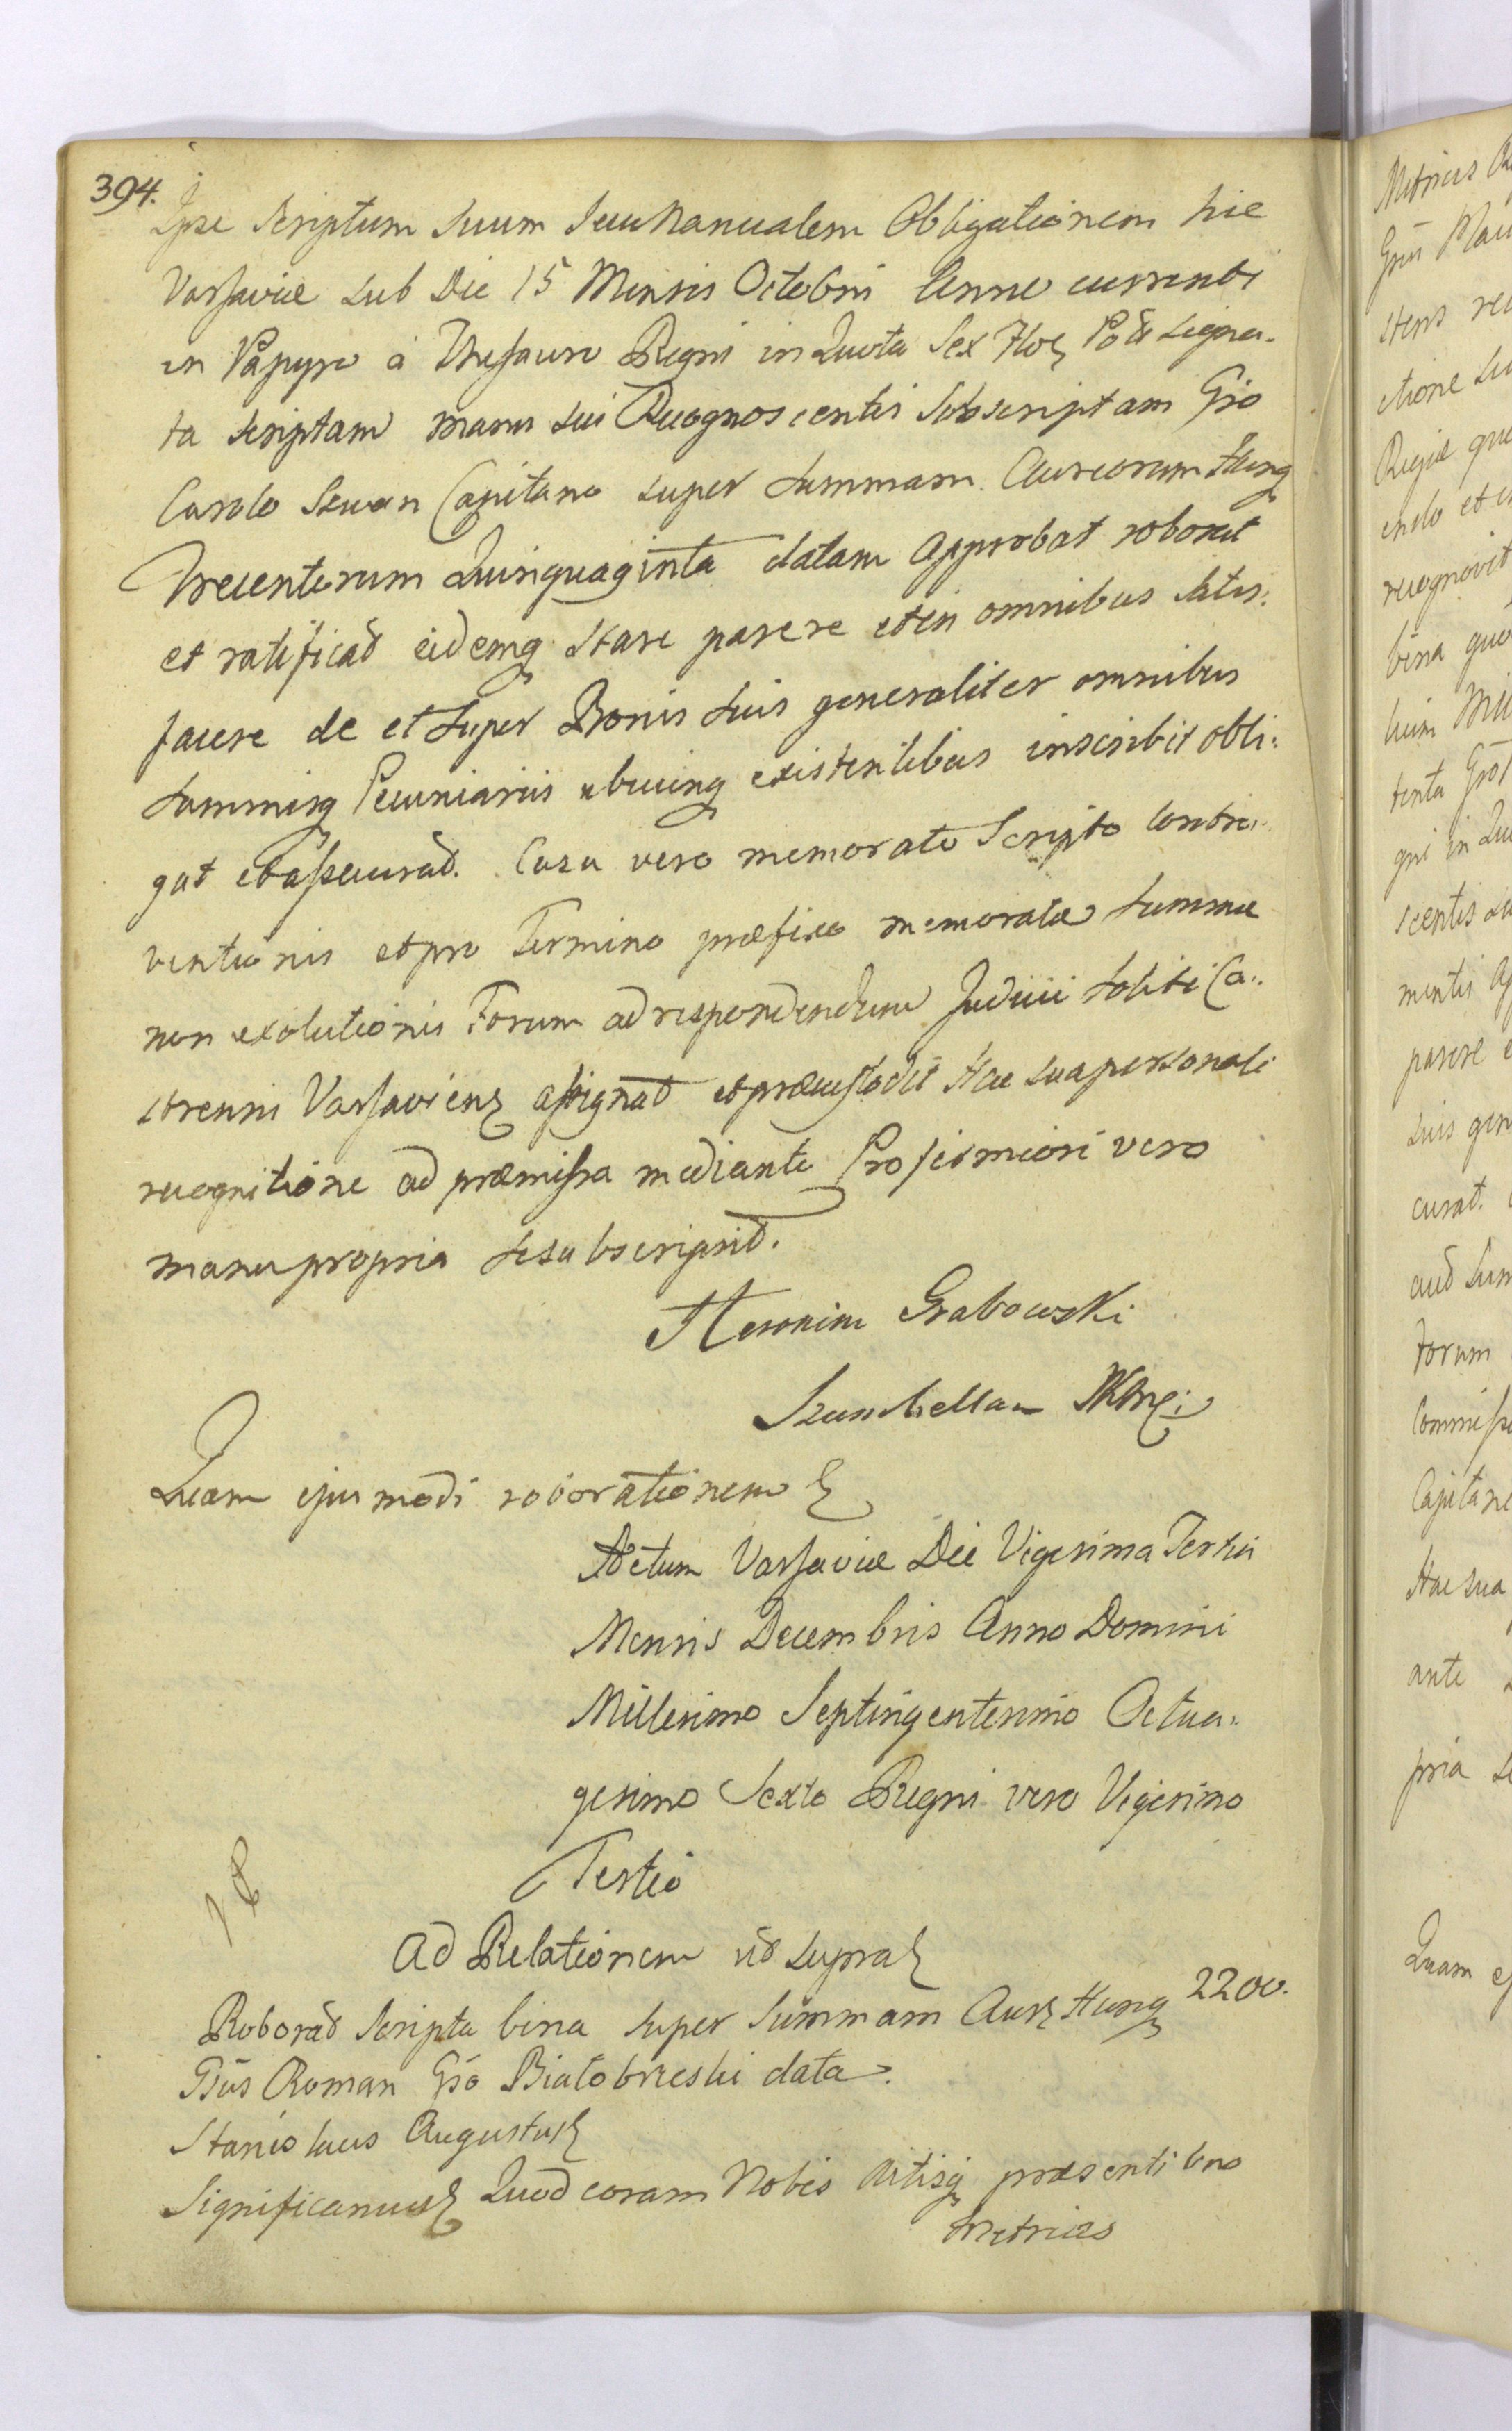 394.
Ipse Scriptum Suum Seu Manualem Obligationem hic
Varsaviæ sub Die 15 Mensis Octobris Anno currenti
in Papyro à Thesauro Regni in Quota Sex Flor Pol Signa-
ta scriptam manu sui Recognoscentis Subscriptam Gso
Carolo Szwan Capitano super Summam Aureorum Hung
Trecentorum Quinquaginta datam approbat roborat
et ratificat eidemq stare parere et in omnibus satis:
facere de et super Bonis suis generaliter omnibus
summisq Pecuniariis ubicunq existentibus inscribit obli:
gat et assecurat. Casu vero memorato Scripto contra-
ventionis et pro Termino præfixo memoratæ summæ
non exolutionis Forum ad respondendum Judicii soliti Ca:
strensi Varsaviens assignat et præcustodit Hac sua personali
recognitione ad præmissa mediante Pro firmiori vero
manu propria se subscripsit.
Heronim Grabowski
Szambellan JKMci
Quam ejusmodi roborationem
Actum Varsaviæ Die Vigesima Tertia
Mensis Decembris Anno Domini
Millesimo Septingentesimo Octua-
gesimo Sexto Regni vero Vigesimo
Tertio
Ad Relationem ut supra
Roborat Scripta bina super Summam Aur Hung 2200.
Gsus Roman Gso Białobrzeski data.
Stanislaus Augustus
Significamus Quod coram Nobis Actisq præsentibus
Metrices